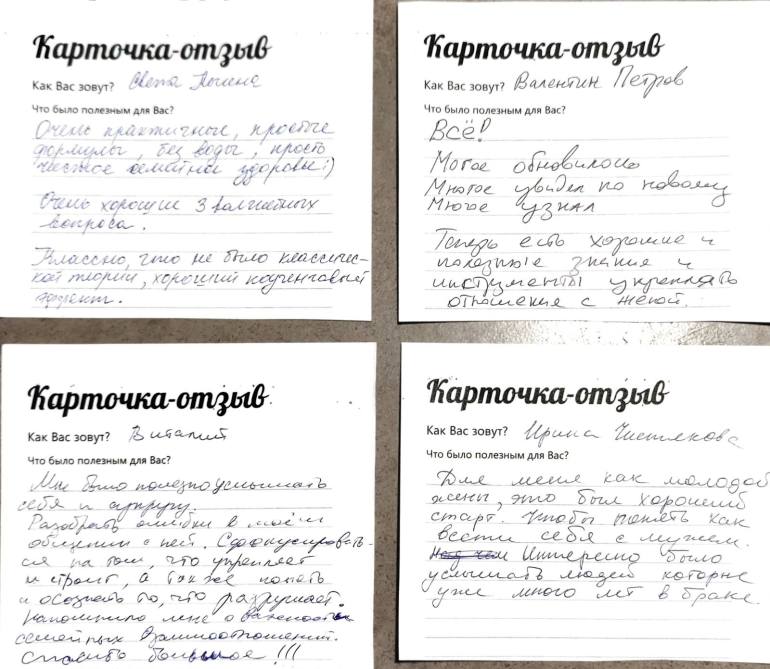 Карточка-отзыв
Как Вас зовут? Света
Что было полезным для Вас?
Очень практичные, простые
формулы, без воды, просто
честное семейное здоровье:)
Очень хорошие 3 волшебных
вопроса.
Классно, что не было классичес-
кой теории, хороший коучинговый
формат.
Карточка-отзыв
Как Вас зовут? Валентин Петров
Что было полезным для Вас?
Всё!
Многое обновилось
Многое увидел по новому
Многое узнал
Теперь есть хорошие и
полезные знания и
инструменты укреплять
отношения с женой.
Карточка-отзыв
Как Вас зовут? Виталий
Что было полезным для Вас?
Мне было полезно услышать
себя и супругу.
Разобрать ошибки в моём
общении с ней. Сфокусировать-
ся на том, что укрепляет
и строит, а также понять
и осознать то, что разрушает.
Напомнило мне о важности
семейных взаимоотношений.
Спасибо большое!!!
Карточка-отзыв
Как Вас зовут? Ирина Чистякова
Что было полезным для Вас?
Для меня как молодой
жены, это был хороший
старт. Чтобы понять как
вести себя с мужем.
Интересно было
услышать людей которые
уже много лет в браке.